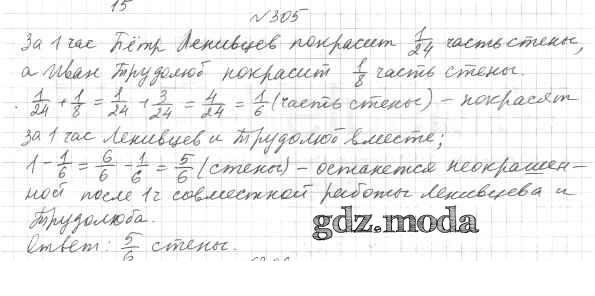 15
№305
За 1 час Пётр Ленивцев покрасит 1/24 часть стены,
а Иван Трудолюб покрасит 1/8 часть стены.
1/24 + 1/8 = 1/24 + 3/24 = 4/24 = 1/6 (часть стены) – покрасят
за 1 час Ленивцев и Трудолюб вместе;
1 - 1/6 = 6/6 - 1/6 = 5/6 (стены) – останется неокрашен-
ной после 1ч совместной работы Ленивцева и
Трудолюба.
gdz.moda
Ответ: 5/6 стены.